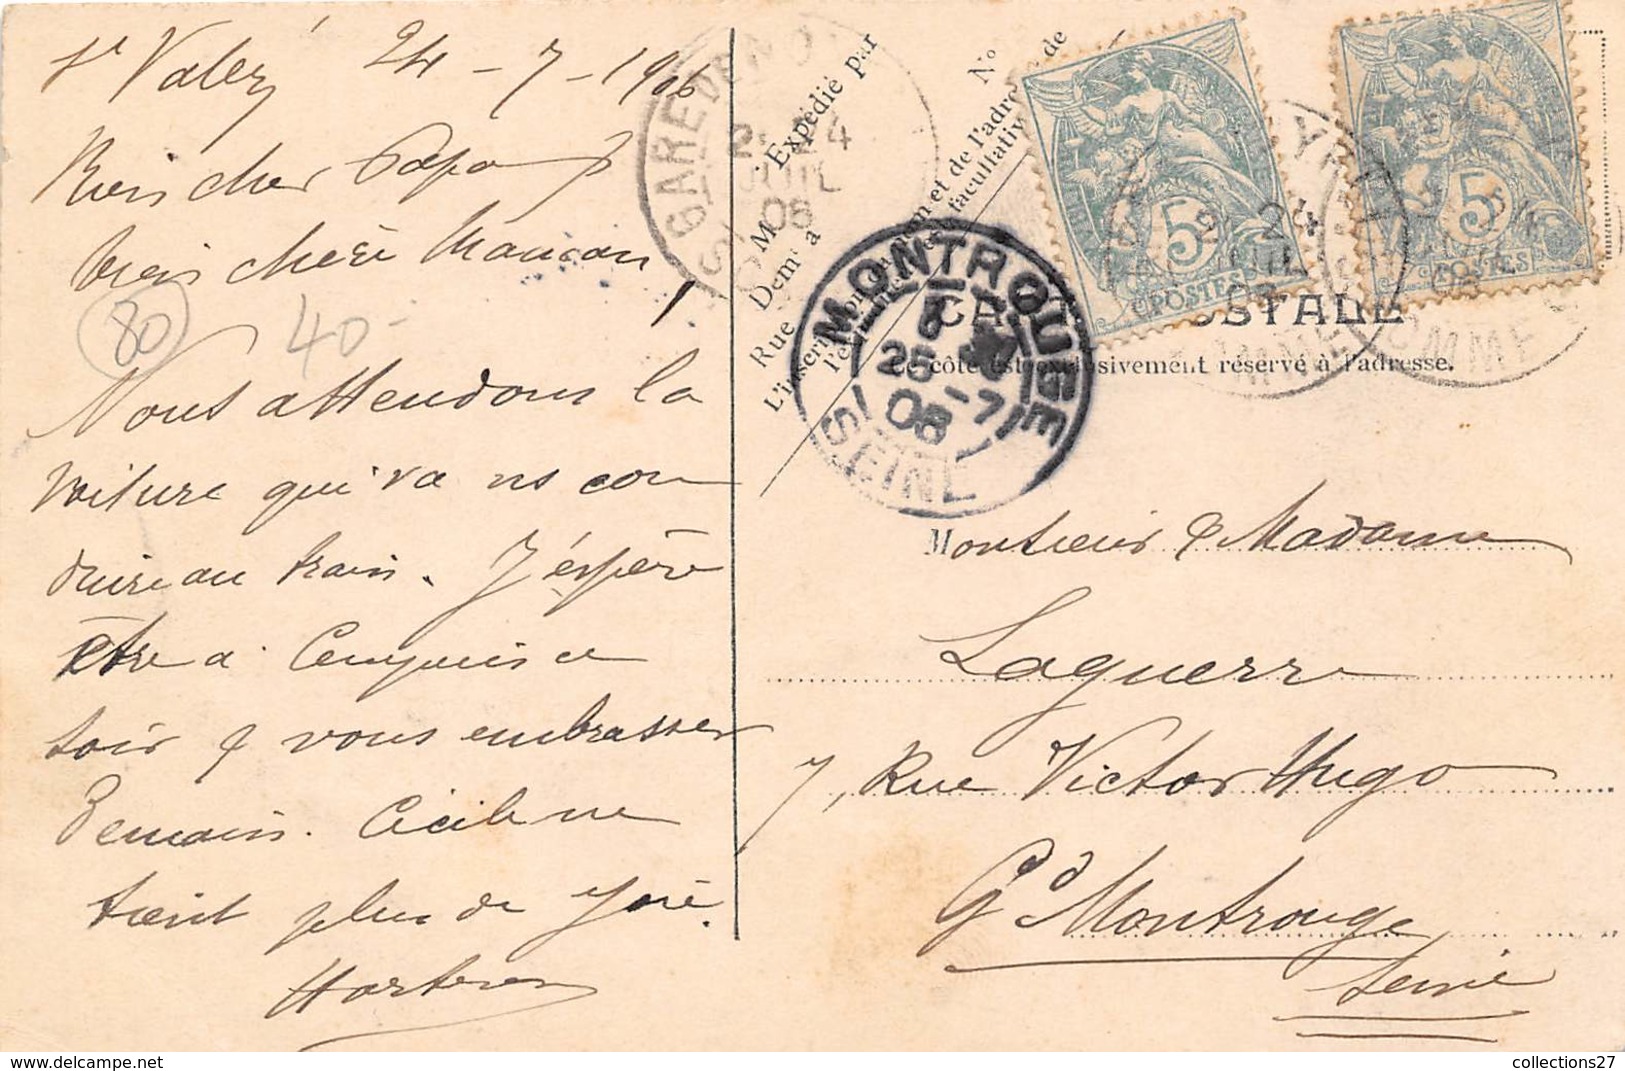 St Valéry 24-7-1906
Bien cher Papa &
bien chère Maman,
80
40-
Nous attendons la
voiture qui va ns con
duire au train. J'espère
être à ce
soir & vous embrasser
Demain. Cécile ne
tient plus de joie.
Hortense
Expédié par
M
Demt à
Rue
No
L'inscription du nom et de l'adresse de
l'expéditeur est facultative
GARE DE NO
24
JUIL
06
MONTROUGE
6
25 -7
06
SEINE
5
POSTES
5
POSTES
24
SOMME
CARTE POSTALE
Ce côté est exclusivement réservé à l'adresse.
Monsieur & Madame
Laguerre
7, Rue Victor Hugo
Gd Montrouge
Seine
collections27